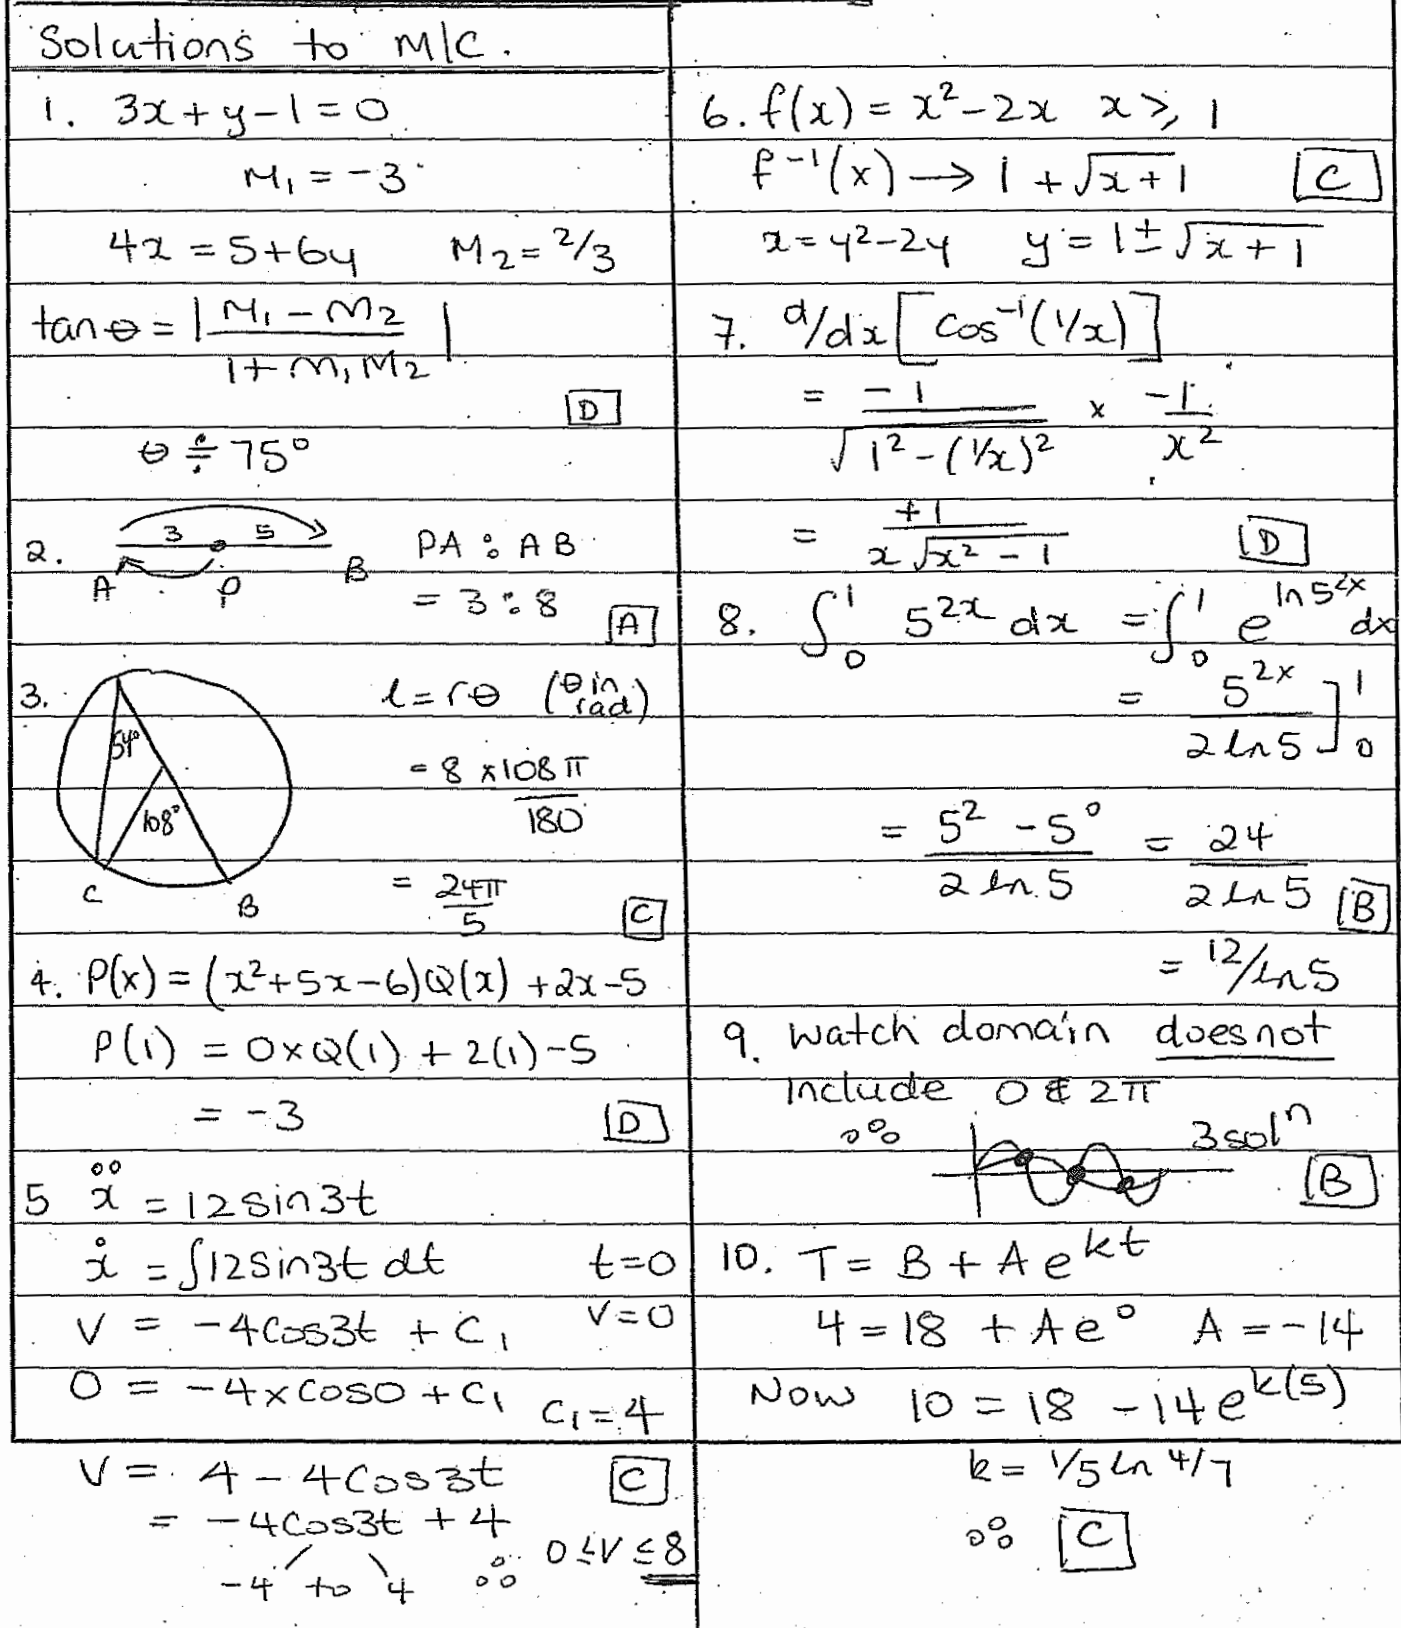 Solutions to M/C.
1. 3x + y - 1 = 0
M₁ = -3
4x = 5 + 6y M₂ = 2/3
tanθ = | (M₁ - M₂) / (1 + M₁M₂) |
D
θ ≑ 75°
2. 3 5 PA : AB
A P B = 3 : 8
A
3. l = rθ (θ in rad)
54°
= 8 × 108π / 180
108°
= 24π / 5
C B
C
4. P(x) = (x² + 5x - 6)Q(x) + 2x - 5
P(1) = 0 × Q(1) + 2(1) - 5
= -3 D
5 ẍ = 12 sin3t
ẋ = ∫12 sin3t dt t = 0
V = -4cos3t + C₁ V = 0
0 = -4 × cos0 + C₁ C₁ = 4
V = 4 - 4cos3t C
= -4cos3t + 4
-4 to 4 ∴ 0 ≤ V ≤ 8
6. f(x) = x² - 2x x ⩾ 1
f⁻¹(x) → 1 + √(x + 1) C
x = y² - 2y y = 1 ± √(x + 1)
7. d/dx [cos⁻¹(1/x)]
= -1 / √(1² - (1/x)²) × -1 / x²
= +1 / x√(x² - 1) D
8. ∫₀¹ 5²ˣ dx = ∫₀¹ e^(ln5²ˣ) dx
= 5²ˣ / 2ln5 ]₀¹
= (5² - 5⁰) / 2ln5 = 24 / 2ln5 B
= 12/ln5
9. Watch domain does not
include 0 & 2π
∴ 3 solⁿ
B
10. T = B + Ae^(kt)
4 = 18 + Ae⁰ A = -14
Now 10 = 18 - 14e^(k(5))
k = 1/5 ln 4/7
∴ C